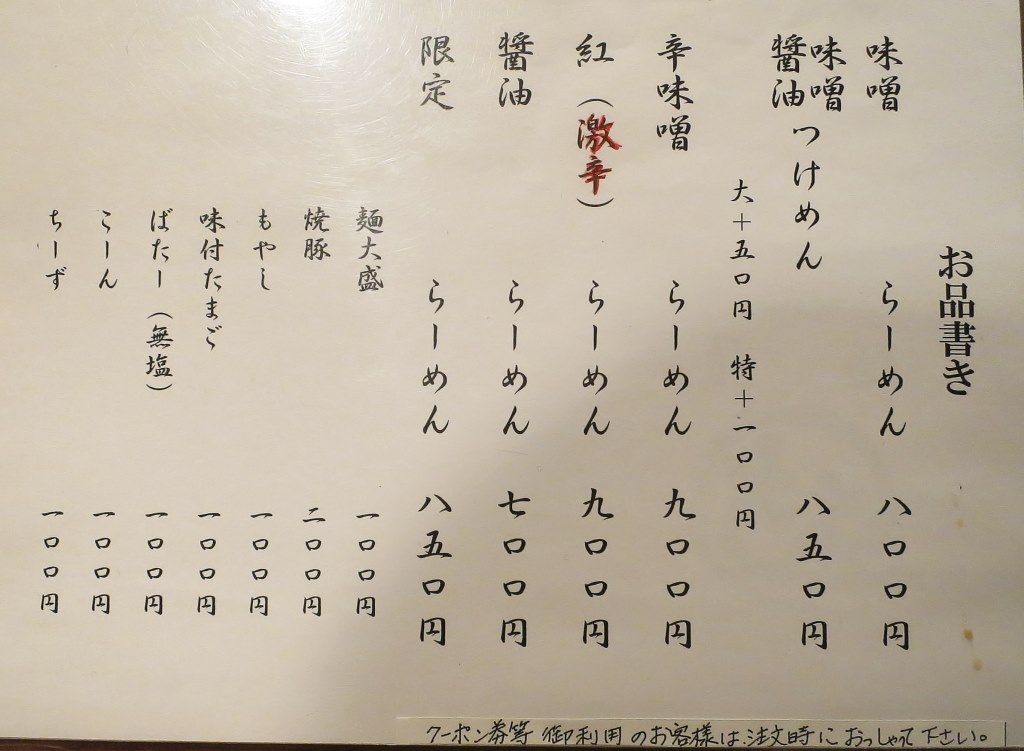 お品書き
味噌 らーめん 八〇〇円
味噌
醤油 つけめん 八五〇円
大+五〇円 特+一〇〇円
辛味噌 らーめん 九〇〇円
紅(激辛) らーめん 九〇〇円
醤油 らーめん 七〇〇円
限定 らーめん 八五〇円
麺大盛 一〇〇円
焼豚 二〇〇円
もやし 一〇〇円
味付たまご 一〇〇円
ばたー(無塩) 一〇〇円
こーん 一〇〇円
ちーず 一〇〇円
クーポン券等 御利用のお客様は注文時におっしゃって下さい。